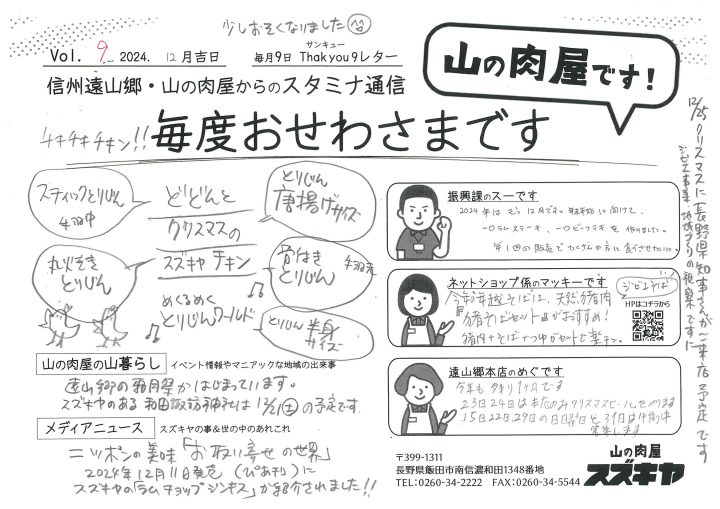 少しおそくなりました
Vol. 9 2024. 12月吉日
サンキュー
毎月9日 Thakyou9レター
信州遠山郷・山の肉屋からのスタミナ通信
山の肉屋です!
チキチキチキン!!
毎度おせわさまです
スティックとりじん
手羽中
どどんと
クリスマスの
スズキヤ チキン
めくるめく
とりじんワールド
とりじん
唐揚げサイズ
丸焼き
とりじん
骨付き
とりじん
手羽元
とりじん半身
サイズ
振興課のスーです
2024年は もう 12月です。年末年始に向けて、
ネットショップ係のマッキーです
今年の年越そばは、天然猪肉
猪そばセットがおすすめ!
ジビエそば
HPはコチラから
遠山郷本店のめぐです
今年も 残り1ヶ月です
23日24日は本店のみクリスマスセールをやります
15日22日29日の日曜日と31日は午前中
営業します
12/25 クリスマスに長野県知事さんがご来店予定です
ジビエ事業・地域づくりの視察ですに
山の肉屋の山暮らし イベント情報やマニアックな地域の出来事
遠山郷の霜月祭がはじまっています。
スズキヤのある 和田諏訪神社は 12/21(土)の予定です。
メディアニュース スズキヤの事&世の中のあれこれ
ニッポンの美味「お取り寄せの世界」
2024年12月11日発売 (ぴあ刊)に
スズキヤの「ラムチョップジンギス」が紹介されました!!
〒399-1311
長野県飯田市南信濃和田1348番地
TEL:0260-34-2222 FAX:0260-34-5544
山の肉屋
スズキヤ